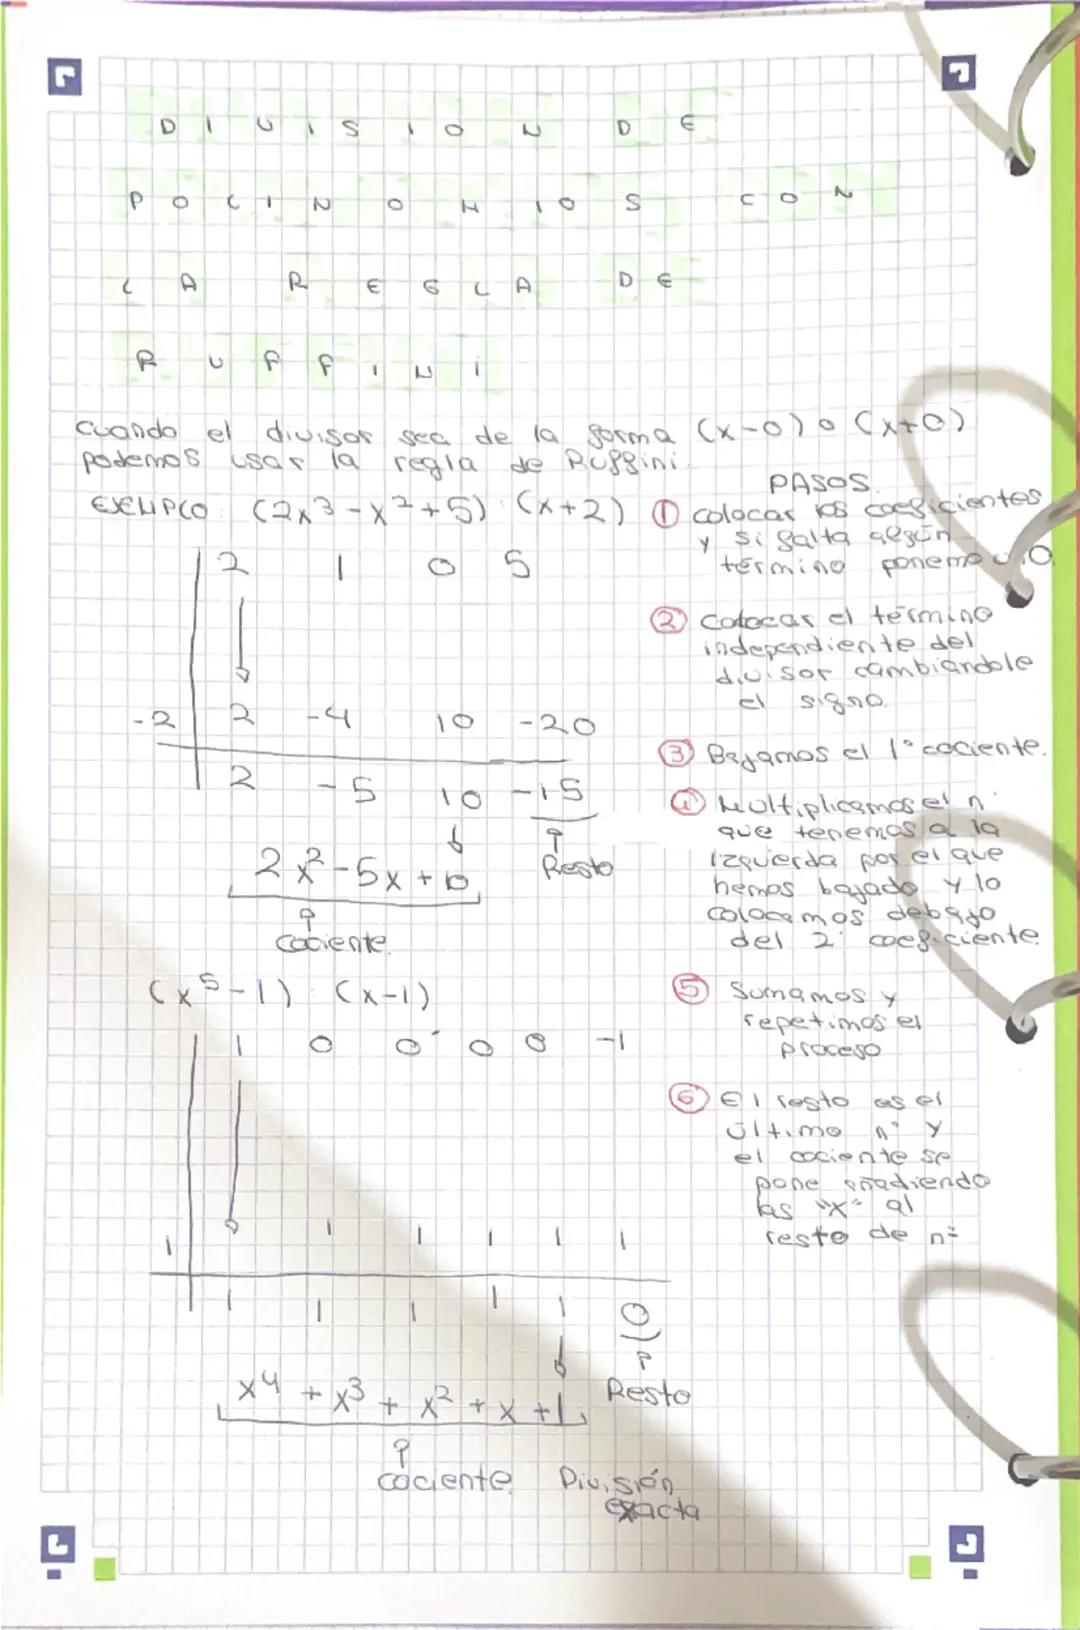 DIVISION DE
POLINOMIOS CON
LA REGLA DE
RUFFINI
cuando el divisor sea de la forma (x-0) o (x+0)
podemos usar la regla de Ruffini.
EJEMPLO: (2x³-x²+5) : (x+2)
2 1 0 5
-2 2 -4 10 -20
2 -5 10 -15
2x²-5x+10
Resto
cociente
(x⁵-1) : (x-1)
1 0 0 0 0 -1
1 1 1 1 1 1
1 1 1 1 1 0
x⁴+x³+x²+x+1
Resto
cociente División
exacta
PASOS
① colocar los coeficientes
y si falta algún
término ponemos 0
② colocar el término
independiente del
divisor cambiandole
el signo.
③ Bajamos el 1º cociente.
④ Multiplicamos el nº
que tenemos a la
izquierda por el que
hemos bajado y lo
colocamos debajo
del 2º coeficiente.
⑤ Sumamos y
repetimos el
proceso
⑥ El resto es el
último nº y
el cociente se
pone añadiendo
las "x" al
resto de nº